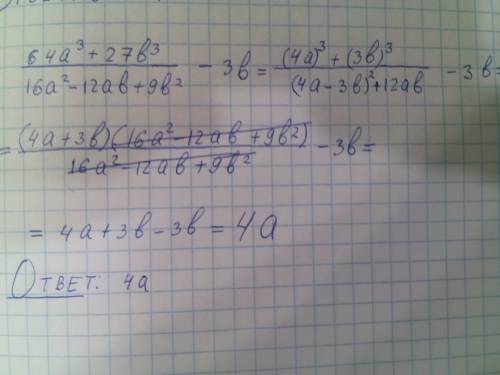 64a³ + 27b³ / 16a² - 12ab + 9b² - 3b = (4a)³ + (3b)³ / (4a - 3b)² + 12ab - 3b =
= (4a + 3b)(16a² - 12ab + 9b²) / 16a² - 12ab + 9b² - 3b =
= 4a + 3b - 3b = 4a
Ответ: 4a